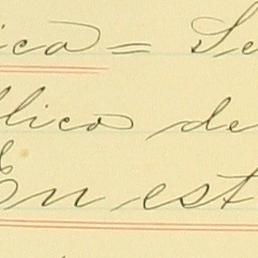 ica = Se
lico de
En est